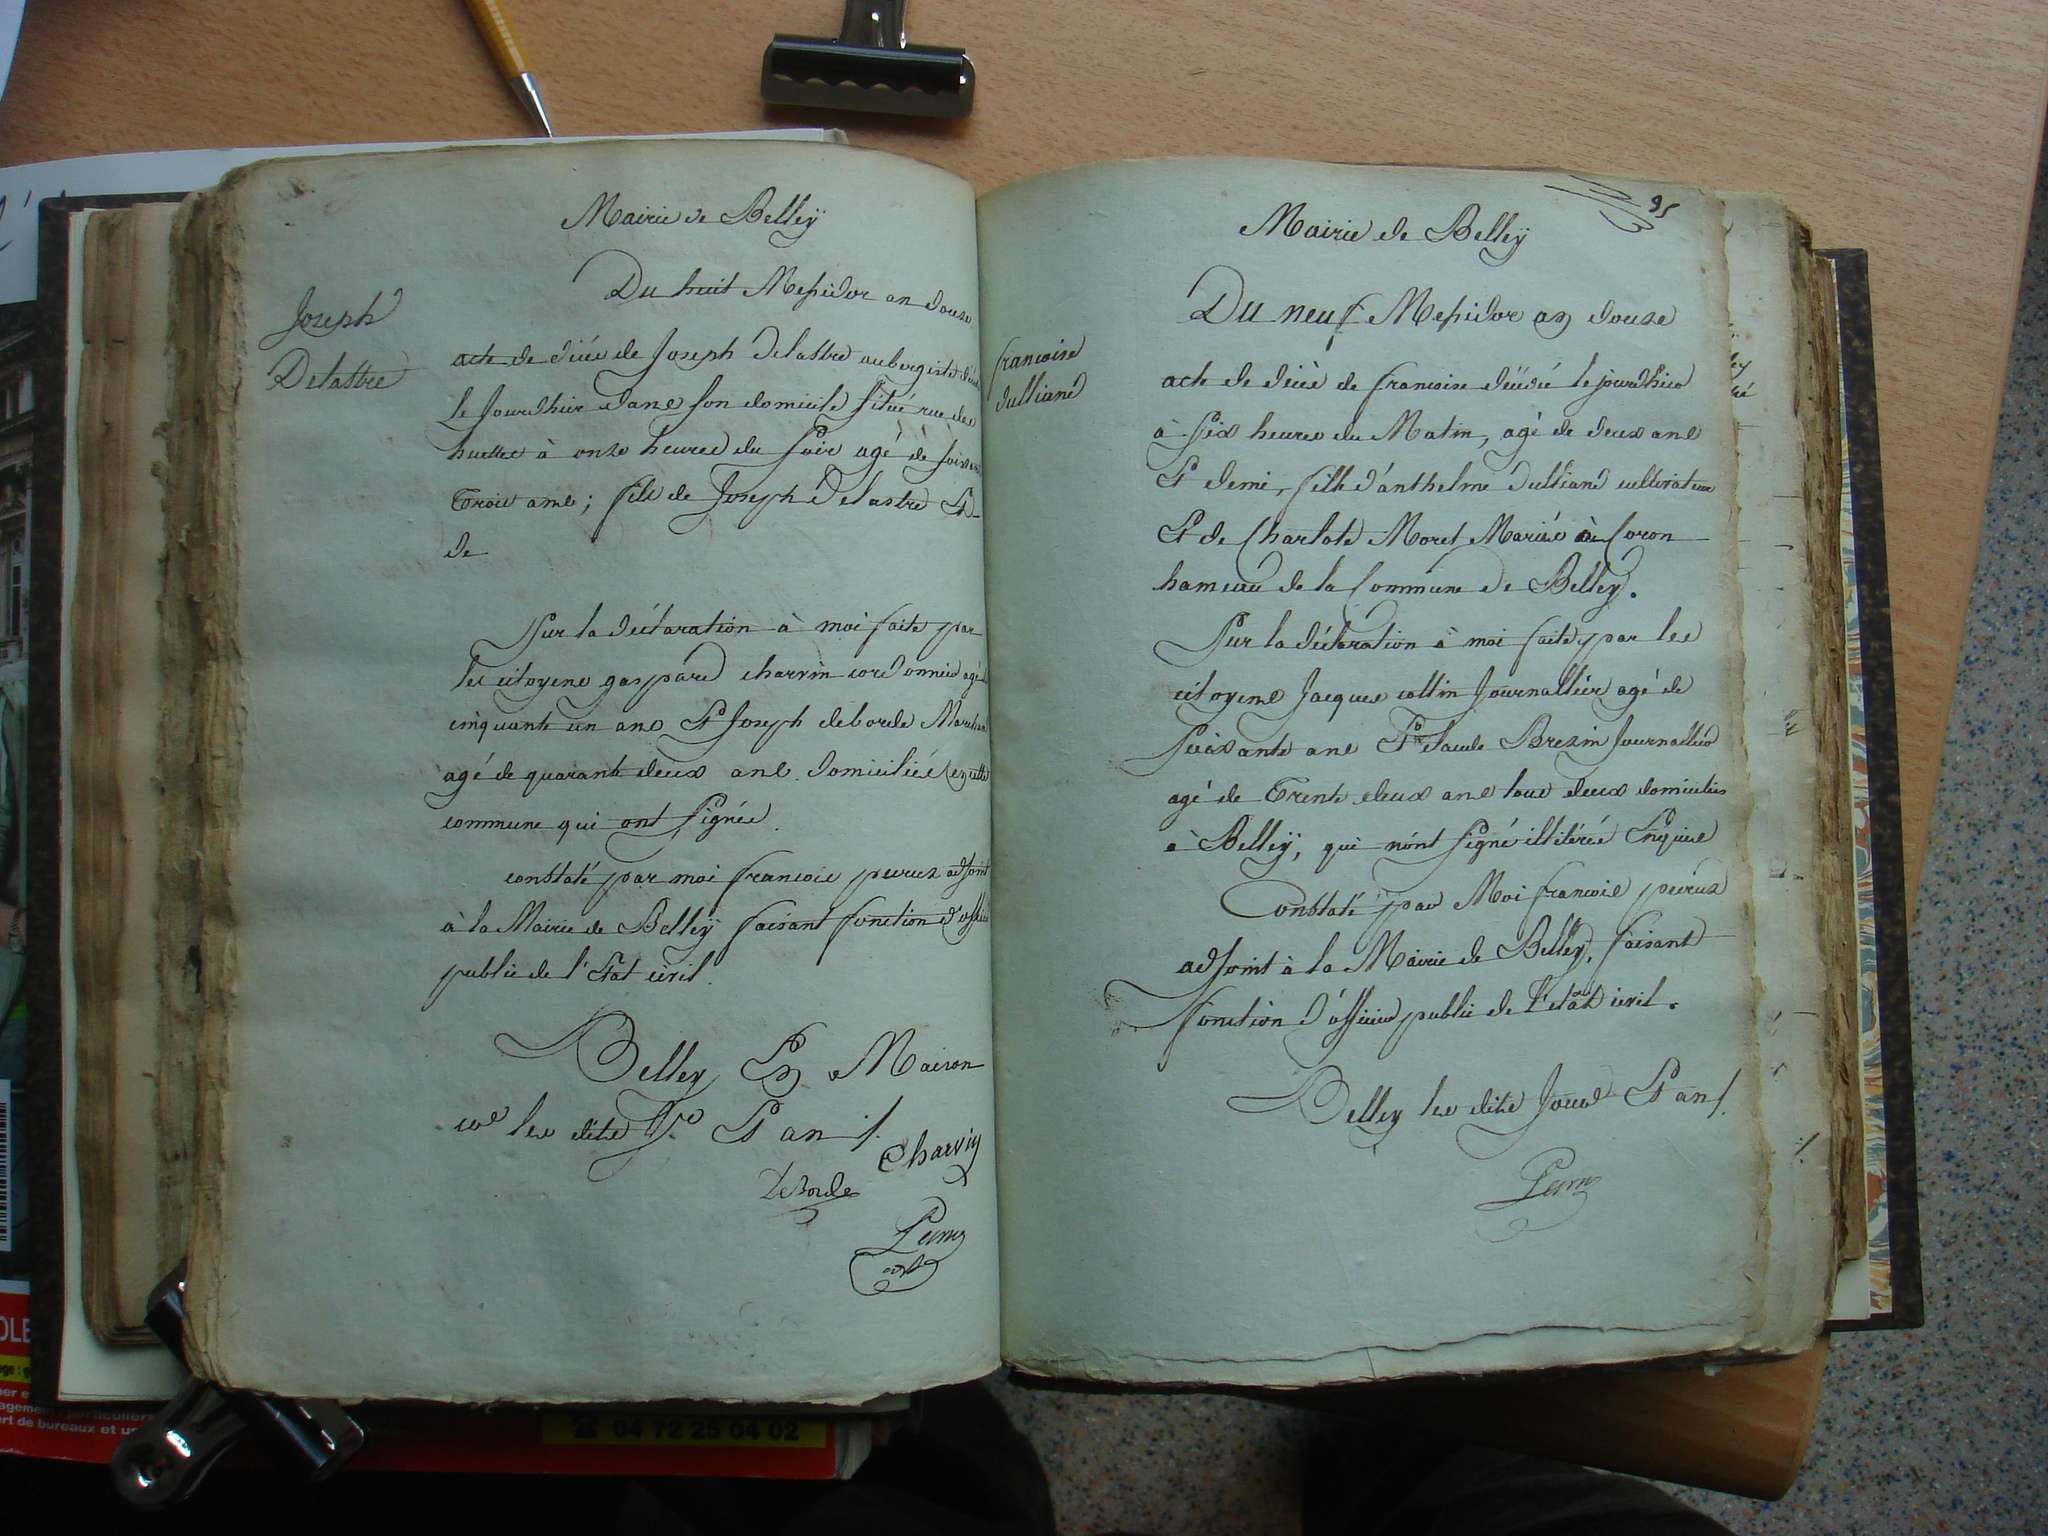 Mairie de Belleÿ
Du huit Messidor an douze
Joseph
Delastre
acte de décès de Joseph Delastre aubergiste
le jourdhuir dans son domicile situé rue des
à onze heures du soir agé de
trois ans; fils de Joseph Delastre Et
de
Sur la déclaration à moi faite par
les citoyens gaspard charvin cordonnier agé
cinquante un ans Et Joseph deborde
agé de quarante deux ans domiciliés en cette
commune qui ont signés
constaté par moi francois peruz adjoint
à la Mairie de Belleÿ faisant fonction d'officier
public de l'Etat civil.
Belley En Maison
les dits Jr Et an /.
Charvin
Deborde
95
Mairie de Belleÿ
Du neuf Messidor an douze
francoise
dulliand
acte de décès de francoise décédé le jourdhuir
à six heures du Matin, agé de deux ans
Et demi, fille d'anthelme dulliand cultivateur
Et de Charlote Moret Mariés à Coron
hameau de la Commune de Belley.
Sur la déclaration à moi faite par les
citoyens Jacques collin Journallier agé de
soixante ans Et claude Brezin Journallier
agé de Trente deux ans tous deux domiciliés
à Belleÿ, qui n'ont signé illitérés Enquis
Constaté par Moi francois peruz
adjoint à la Mairie de Belley, faisant
fonction d'officier public de l'etat civil.
Belley les dits Jour Et an /.
04 72 25 04 02